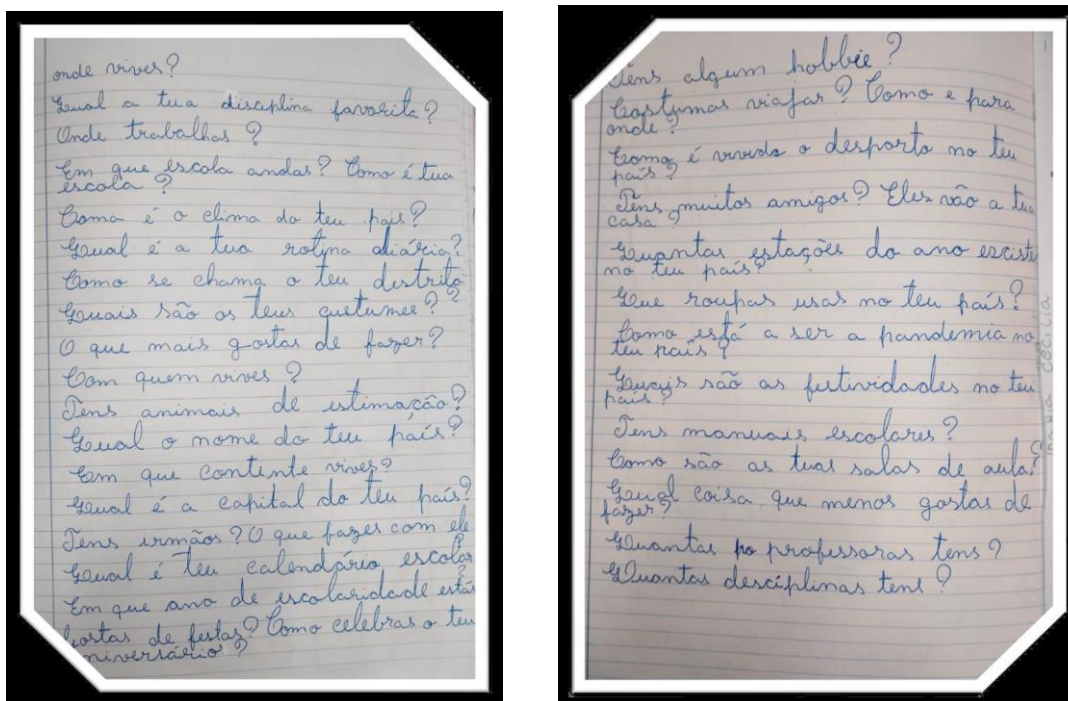 onde vives?
Qual a tua disciplina favorita?
Onde trabalhas?
Em que escola andas? Como é tua
escola?
Coma é o clima do teu país?
Qual é a tua rotina diária?
Como se chama o teu distrito?
Quais são os teus custumes?
O que mais gostas de fazer?
Com quem vives?
Tens animais de estimação?
Qual o nome do teu país?
Em que contente vives?
Qual é a capital do teu país?
Tens irmãos? O que fazes com ele
Qual é teu calendário escolar
Em que ano de escolaridade estás
Gostas de festas? Como celebras o teu
aniversário?
Tens algum hobbie?
Costumas viajar? Como e para
onde?
Como é vivido o desporto no teu
país?
Tens muitos amigos? Eles vão a tua
casa?
Quantas estações do ano escist
no teu país?
Que roupas usas no teu país?
Como está a ser a pandemia no
teu país?
Quais são as festividades no teu
país?
Tens manuais escolares?
Como são as tuas salas de aula?
Qual coisa que menos gostas de
fazer?
Quantas po professoras tens?
Quantas desciplinas tens?